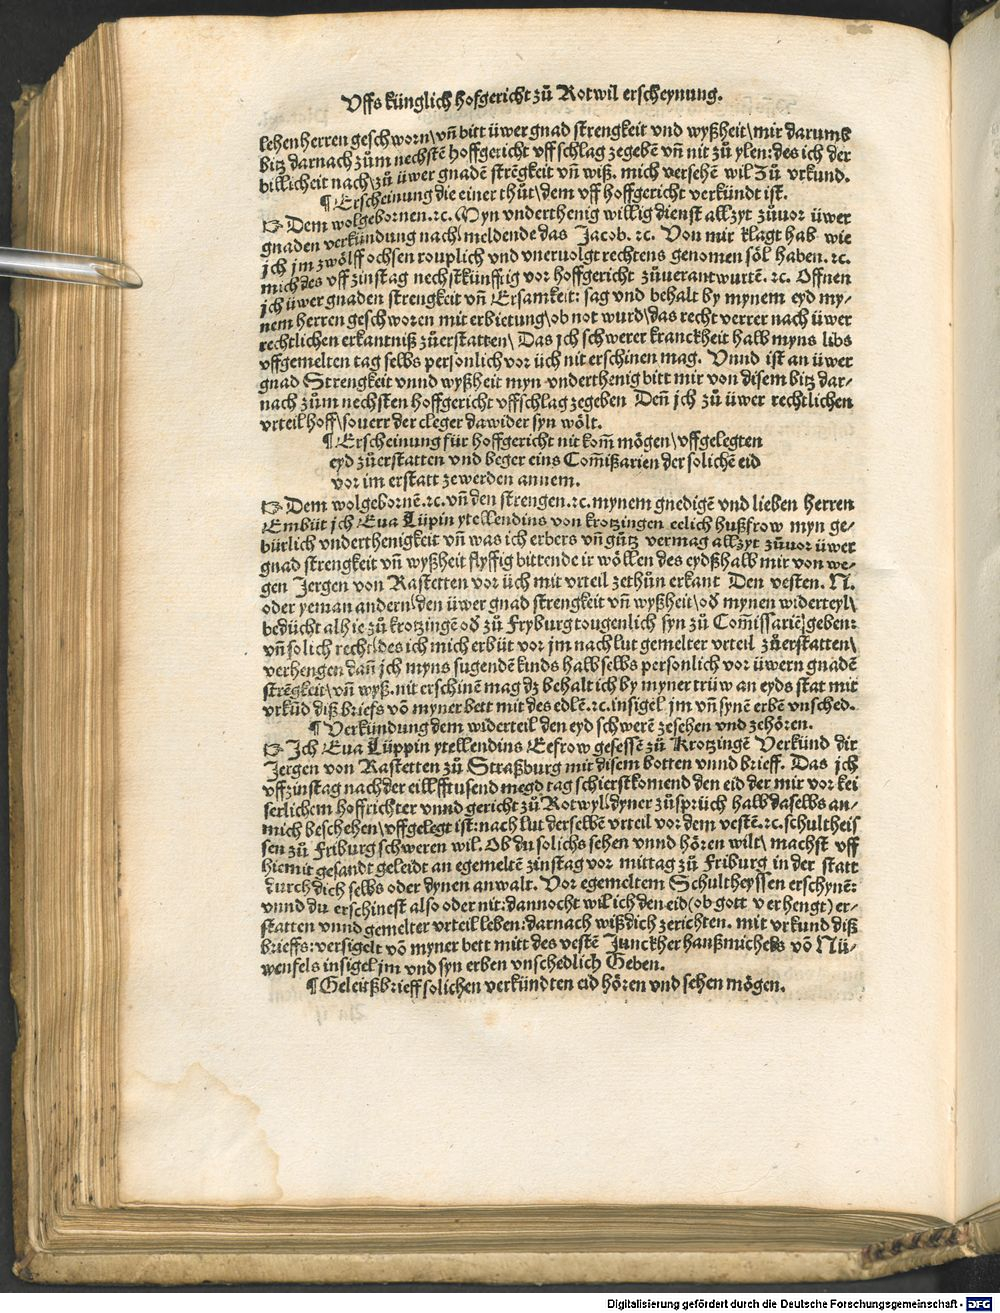 Uffs künglich hofgericht zů Rotwil erscheynung.
lehenherren geschworn\ vñ bitt üwer gnad strengkeit vnd wyßheit\ mir darumb
bitz darnach zům nechstē hoffgericht vffschlag zegebē vñ nit zů ylen: des ich der
billicheit nach\ zů üwer gnadē strēgkeit vñ wiß. mich versehē wil Zů vrkund.
¶ Erscheinung die einer thůt\ dem vff hoffgericht verkündt ist.
☞ Dem wolgebornen.ꝛc. Myn vnderthenig willig dienst allzyt zůuor üwer
gnaden verkündung nach\ meldende das Jacob. ꝛc. Von mir klagt hab wie
ich jm zwölff ochsen rouplich vnd vneruolgt rechtens genomen söl haben. ꝛc.
mich des vff zinstag nechstkünfftig vor hoffgericht zůuerantwurtē. ꝛc. Offnen
ich üwer gnaden strengkeit vñ Ersamkeit: sag vnd behalt by mynem eyd my⸗
nem herren geschworen mit erbietung\ ob not wurd\ das recht verrer nach üwer
rechtlichen erkantniß zůerstatten\ Das ich schwerer kranckheit halb myns libs
vffgemelten tag selbs persönlich vor üch nit erschinen mag. Vnnd ist an üwer
gnad Strengkeit vnnd wyßheit myn vnderthenig bitt mir von disem bitz dar⸗
nach zům nechsten hoffgericht vffschlag zegeben Deñ ich zů üwer rechtlichen
vrteil hoff\ souerr der cleger dawider syn wölt.
¶ Erscheinung für hoffgericht nit kom̄ mögen\ vffgelegten
eyd zůerstatten vnd beger eins Com̄ißarien der solichē eid
vor im erstatt zewerden annem.
☞ Dem wolgebornē.ꝛc. vñ den strengen.ꝛc. mynem gnedigē vnd lieben herren
Embüt ich Eua Lüpin ytellendins von krotzingen eelich hußfrow myn ge⸗
bürlich vnderthenigkeit vñ was ich erbers vñ gůtz vermag allzyt zůuor üwer
gnad strengkeit vñ wyßheit flyssig bittende ir wöllen des eydßhalb mir von we⸗
gen Jergen von Rastetten vor üch mit vrteil zethůn erkant Den vesten. N.
oder yeman andern\ den üwer gnad strengkeit vñ wyßheit\ od̄ mynen widerteyl\
bedücht alhie zů krotzingē od̄ zů Fryburg tougenlich syn zů Com̄issariē geben:
vñ solich recht\ des ich mich erbüt vor jm nach lut gemelter vrteil zůerstatten\
verhengen dañ ich myns sugendē kinds halb selbs persönlich vor üwern gnadē
strēgkeit\ vñ wyß. nit erschinē mag dz behalt ich by myner trüw an eyds stat mit
vrkūd diß briefs vō myner bett mit des edlē.ꝛc. insigel jm vñ synē erbē vnsched.
¶ Verkündung dem widerteil den eyd schwerē zesehen vnd zehören.
☞ Ich Eua Lüppin ytellendins Eefrow gesessē zů Krotzingē Verkünd dir
Jergen von Rastetten zů Straßburg mit disem botten vnnd brieff. Das ich
vff zinstag nach der eillfftusend megd tag schierstkomend den eid der mir vor kei
serlichem hoffrichter vnnd gericht zů Rotwyl\ dyner zůsprüch halb daselbs an⸗
mich beschehen\ vffgelegt ist: nach lut derselbē vrteil vor dem vestē.ꝛc. schultheis
sen zů Friburg schweren wil. Ob du solichs sehen vnnd hören wilt\ machst vff
hiemit gesandt geleidt an egemeltē zinstag vor mittag zů Friburg in der statt
durch dich selbs oder dynen anwalt. Vor egemeltem Schultheyssen erschynē:
vnnd du erschinest also oder nit: dannocht wil ich den eid (ob gott verhengt) er⸗
statten vnnd gemelter vrteil leben: darnach wißdich zerichten. mit vrkund diß
brieffs: versigelt vō myner bett mitt des vestē Junckher hanßmichels vō Nü⸗
wenfels insigel jm vnd syn erben vnschedlich Geben.
¶ Geleitßbrieff solichen verkündten eid hören vnd sehen mögen.
Digitalisierung gefördert durch die Deutsche Forschungsgemeinschaft - DFG